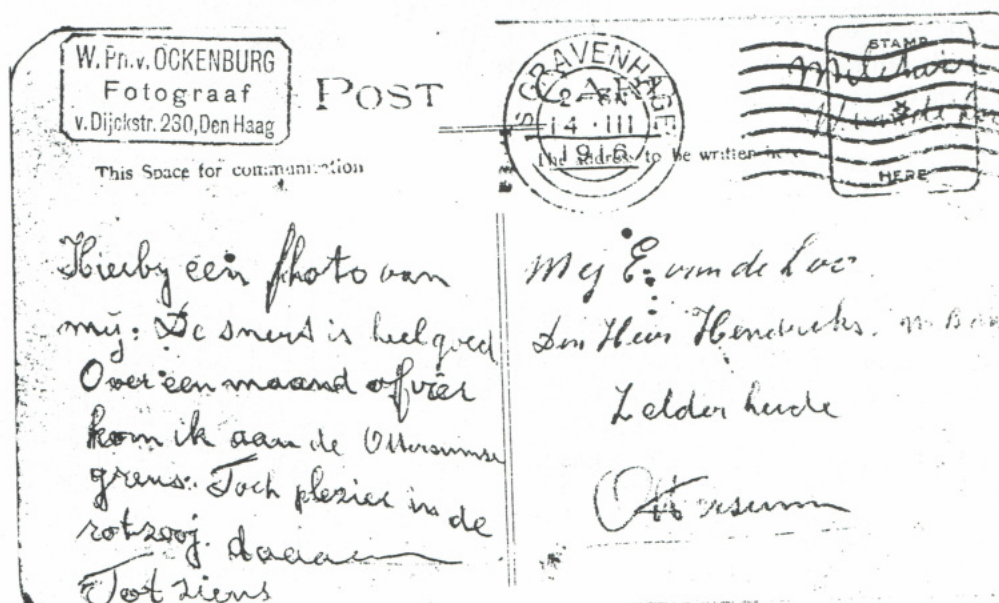 W. Ph. v. OCKENBURG
Fotograaf
v. Dijckstr. 230, Den Haag
POST CARD
'S GRAVENHAGE
14 · III
1916
STAMP
HERE
This Space for communication
The address to be written here
Hierby een photo van
mij: De snert is heel goed
Over een maand of vier
kom ik aan de Ottersumse
grens: Toch plezier in de
rotzooj. daaaa
Tot ziens
Mej E. van de Loo
Den Heer Hendriks.
Zelder heide
Ottersum